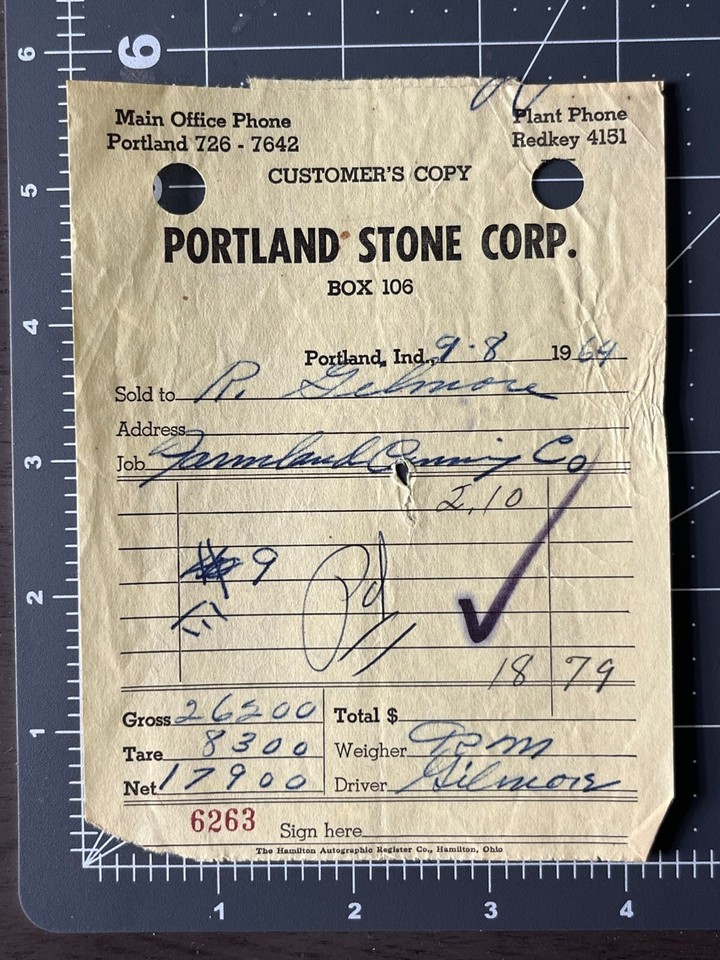 Main Office Phone
Portland 726 - 7642
Plant Phone
Redkey 4151
CUSTOMER'S COPY
PORTLAND STONE CORP.
BOX 106
Portland, Ind., 9-8 1964
Sold to R. Gilmore
Address
Job Farmland Canning Co
2.10
# 9
Pd
18 79
Gross 26200
Total $
Tare 8300
Weigher
Net 17900
Driver Gilmore
6263 Sign here
The Hamilton Autographic Register Co., Hamilton, Ohio
6
5
4
3
2
1
6
1
2
3
4